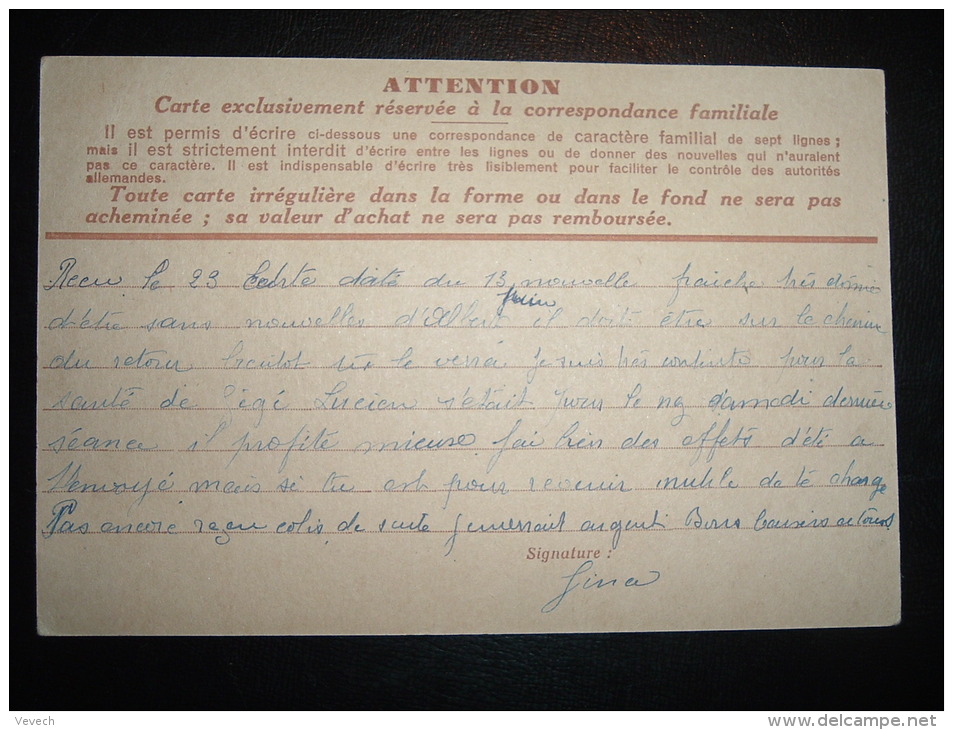 ATTENTION
Carte exclusivement réservée à la correspondance familiale
Il est permis d'écrire ci-dessous une correspondance de caractère familial de sept lignes ;
mais il est strictement interdit d'écrire entre les lignes ou de donner des nouvelles qui n'auraient
pas ce caractère. Il est indispensable d'écrire très lisiblement pour faciliter le contrôle des autorités
allemandes.
Toute carte irrégulière dans la forme ou dans le fond ne sera pas
acheminée ; sa valeur d'achat ne sera pas remboursée.
Recu le 23 Carte daté du 13 nouvelle fraiche très
juin
d'être sans nouvelles d'Albert il doit être sur le chemin
du retour le verra Je suis très contente pour la
santé de Gégé Lucien Samedi
séance il profite mieux J'ai bien des effets d'été a
t'envoyé mais si tu est pour revenir inutile de te charge
Pas encore reçu colis de suite argent Bons baisers a tous
Signature :
Gina
Vevech
www.delcampe.net